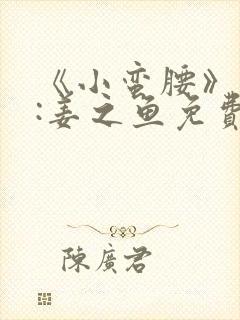 《小蛮腰》
:姜之鱼免費
陳廣君